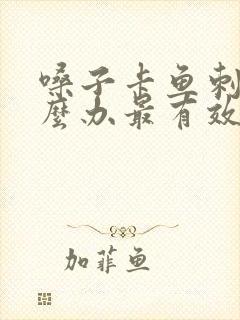 嗓子卡鱼刺
麽办最有效
加菲鱼